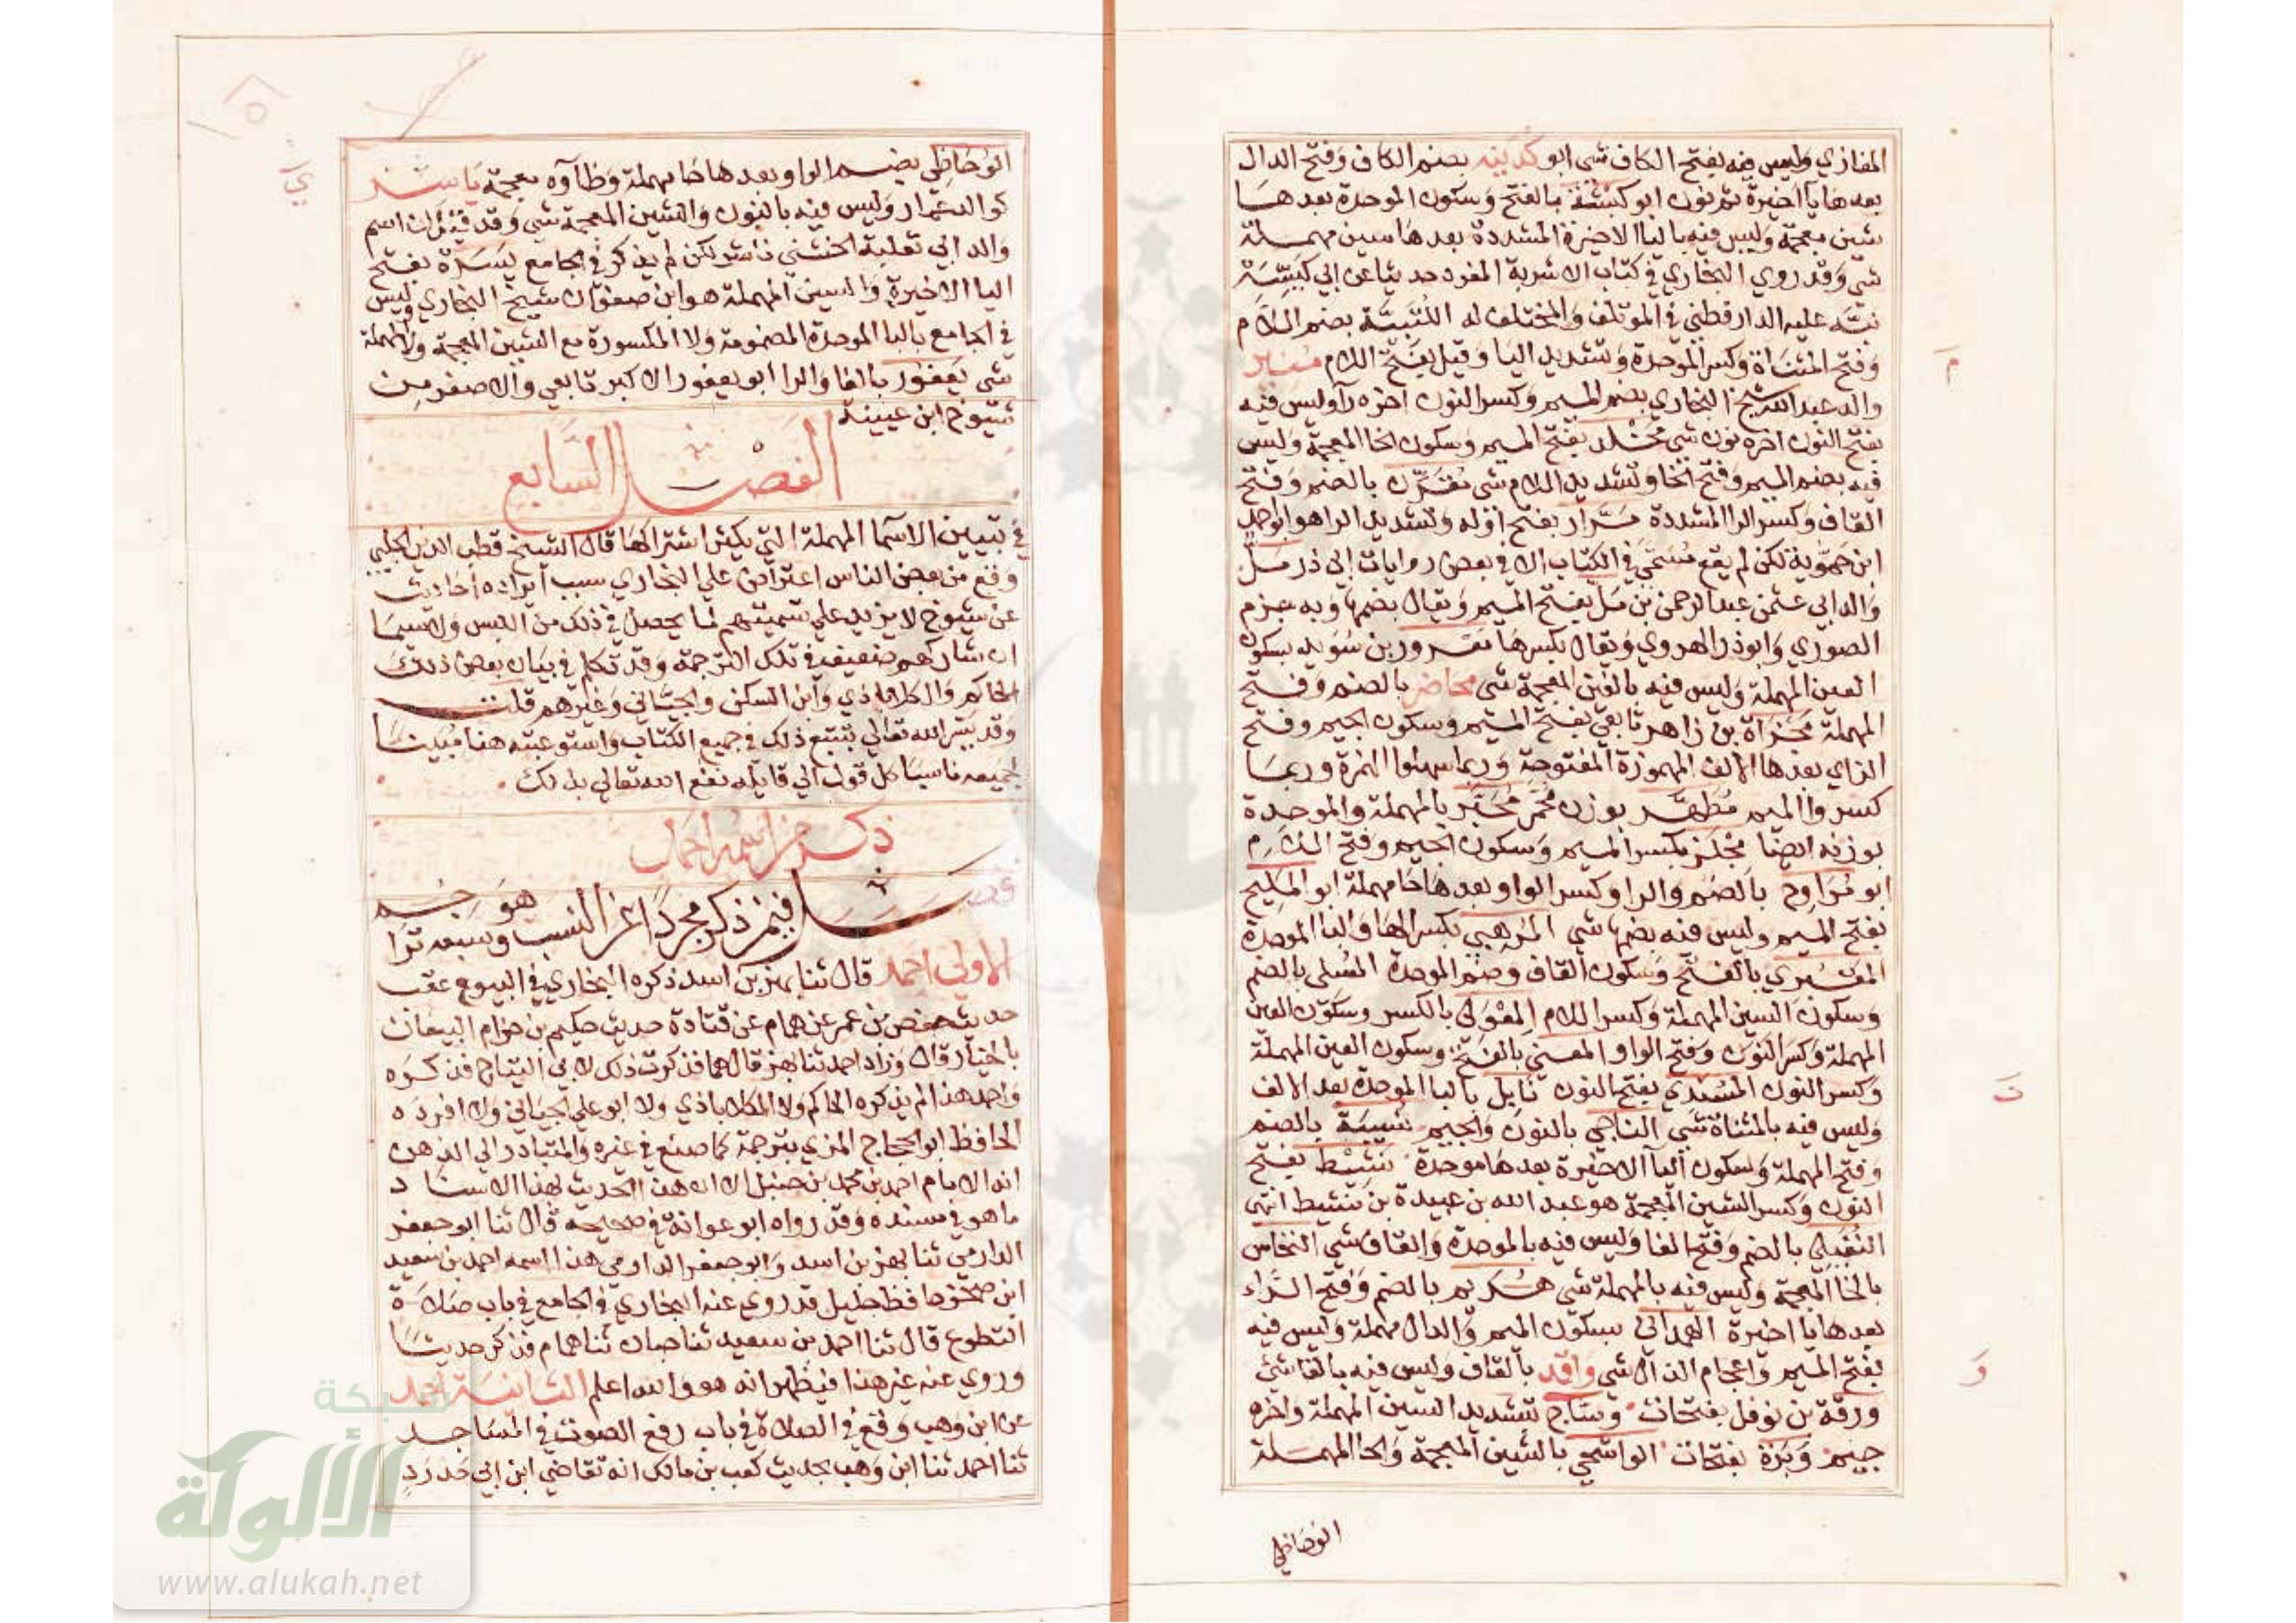 المغازي وليس فيه بفتح الكاف شي ابو كدينة بضم الكاف وفتح الدال
بعدها يا اخيرة ثم نون ابو كبشة بالفتح وسكون الموحدة بعدها
شين معجمة وليس فيه باليا الاخيرة المشددة بعدها سين مهملة
شي وقد روي البخاري في كتاب الاشربة المفرد حديثا عن ابي كبيسة
نبه عليه الدارقطني في الموتلف والمختلف له اللتبية بضم اللام
وفتح المثناة وكسر الموحدة وتشديد اليا وقيل بفتح اللام منير
والد عبد الله شيخ البخاري بضم الميم وكسر النون اخره را وليس فيه
بفتح النون اخره نون شي مخلد بفتح الميم وسكون الخا المعجمة وليس
فيه بضم الميم وفتح الخا وتشديد اللام شي مقرن بالضم وفتح
القاف وكسر الرا المشددة مرار بفتح اوله وتشديد الرا هو ابو احمد
ابن حموية لكن لم يقع مسمي في الكتاب الا في بعض روايات ابي ذر مل
والد ابي عثمن عبد الرحمن بن مل بفتح الميم ويقال بضمها وبه جزم
الصوري وابوذر الهروي ويقال بكسرها معرور بن سويد بسكون
العين المهملة وليس فيه بالغين المعجمة شي محاضر بالضم وفتح
المهملة مجزاة بن زاهر تابعي بفتح الميم وسكون الجيم وفتح
الزاي بعدها الالف المهموزة المفتوحة وربما سهلوا الهمزة وربما
كسروا الميم مطهر بوزن محمد محبر بالمهملة والموحدة
بوزنه ايضا مجلز بكسر الميم وسكون الجيم وفتح اللام
ابو مراوح بالضم والرا وكسر الواو بعدها حا مهملة ابو المليح
بفتح الميم وليس فيه بضمها شي المرهبي بكسر الها والبا الموحدة
المقبري بالفتح وسكون القاف وضم الموحدة المسلي بالضم
وسكون السين المهملة وكسر اللام المعولي بالكسر وسكون العين
المهملة وكسر النون وفتح الواو المعني بالفتح وسكون العين المهملة
وكسر النون المسندي بفتح النون نابل بالبا الموحدة بعد الالف
وليس فيه بالمثناة شي الناجي بالنون والجيم نسيبة بالضم
وفتح المهملة وسكون اليا الاخيرة بعدها موحدة نشيط بفتح
النون وكسر الشين المعجمة هو عبد الله بن عبيدة بن نشيط انتهى
النفيلي بالضم وفتح الفا وليس فيه بالموحدة والقاف شي النخاس
بالخا المعجمة وليس فيه بالمهملة شي هريم بالضم وفتح الراء
بعدها يا اخيرة الهمداني بسكون الميم والدال مهملة وليس فيه
بفتح الميم واعجام الذال شي واقد بالقاف وليس فيه بالفا شئ
ورقة بن نوفل بفتحات وساج بتشديد السين المهملة واخره
جيم وبرة بفتحات الواشحي بالشين المعجمة والحا المهملة
الوحاظي
م
ن
و
ي
الوحاظي بضم الواو بعدها حا مهملة وظاوه معجمة ياسر
كوالد عمار وليس فيه بالنون والشين المعجمة شي وقد قيل ان اسم
والد ابي ثعلبة الخشني ناشر لكن لم يذكر في الجامع يسرة بفتح
اليا الاخيرة والسين المهملة هو ابن صفوان شيخ البخاري وليس
في الجامع بالبا الموحدة المضمومة ولا المكسورة مع الشين المعجمة ولا المهملة
شي يعفور بالفا والرا ابو يعفور الاكبر تابعي والاصغر من
شيوخ ابن عيينة
الفصل السابع
في تبيين الاسما المهملة التي يكثر اشتراكها قال الشيخ قطب الدين الحلبي
وقع من بعض الناس اعتراض علي البخاري بسبب ايراده احاديث
عن شيوخ لا يزيد علي تسميتهم لما يحصل في ذلك من اللبس ولا سيما
ان شاركهم ضعيف في تلك الترجمة وقد تكلم في بيان بعض ذلك
الحاكم والكلاباذي وابن السكن والجياني وغيرهم قلت
وقد يسر الله تعالي بتتبع ذلك في جميع الكتاب واستوعبته هنا مبينا
لجميعه ناسبا كل قول الي قايله نفع الله تعالي بذلك
ذكر من اسمه احمد
فصل فيمن ذكر مجردا عن النسب وسبعه ترا هو جم
الاولي احمد قال ثنا بهز بن اسد ذكره البخاري في البيوع عقب
حديث حفص بن عمر عن همام عن قتادة حديث حكيم بن حزام البيعان
بالخيار قال وزاد احمد ثنا بهز قال همام فذكرت ذلك لابي التياح فذكره
واحمد هذا لم يذكره الحاكم ولا الكلاباذي ولا ابو علي الجياني ولا افرده
الحافظ ابو الحجاج المزي بترجمة كما صنع في غيره والمتبادر الي الذهن
انه الامام احمد بن محمد بن حنبل الا ان هذا الحديث بهذا الاسناد
ما هو في مسنده وقد رواه ابو عوانة في صحيحه قال ثنا ابو جعفر
الدارمي ثنا بهز بن اسد وابو جعفر الدارمي هذا اسمه احمد بن سعيد
ابن صخر حافظ جليل قد روي عنه البخاري في الجامع في باب صلاة
التطوع قال ثنا احمد بن سعيد ثنا حبان ثنا همام فذكر حديثا
وروي عنه غير هذا فيظهر انه هو والله اعلم الثانية احمد
عن ابن وهب وقع في الصلاة في باب رفع الصوت في المساجد
ثنا احمد ثنا ابن وهب بحديث كعب بن مالك انه تقاضي ابن ابي حدرد
شبكة
الألوكة
www.alukah.net